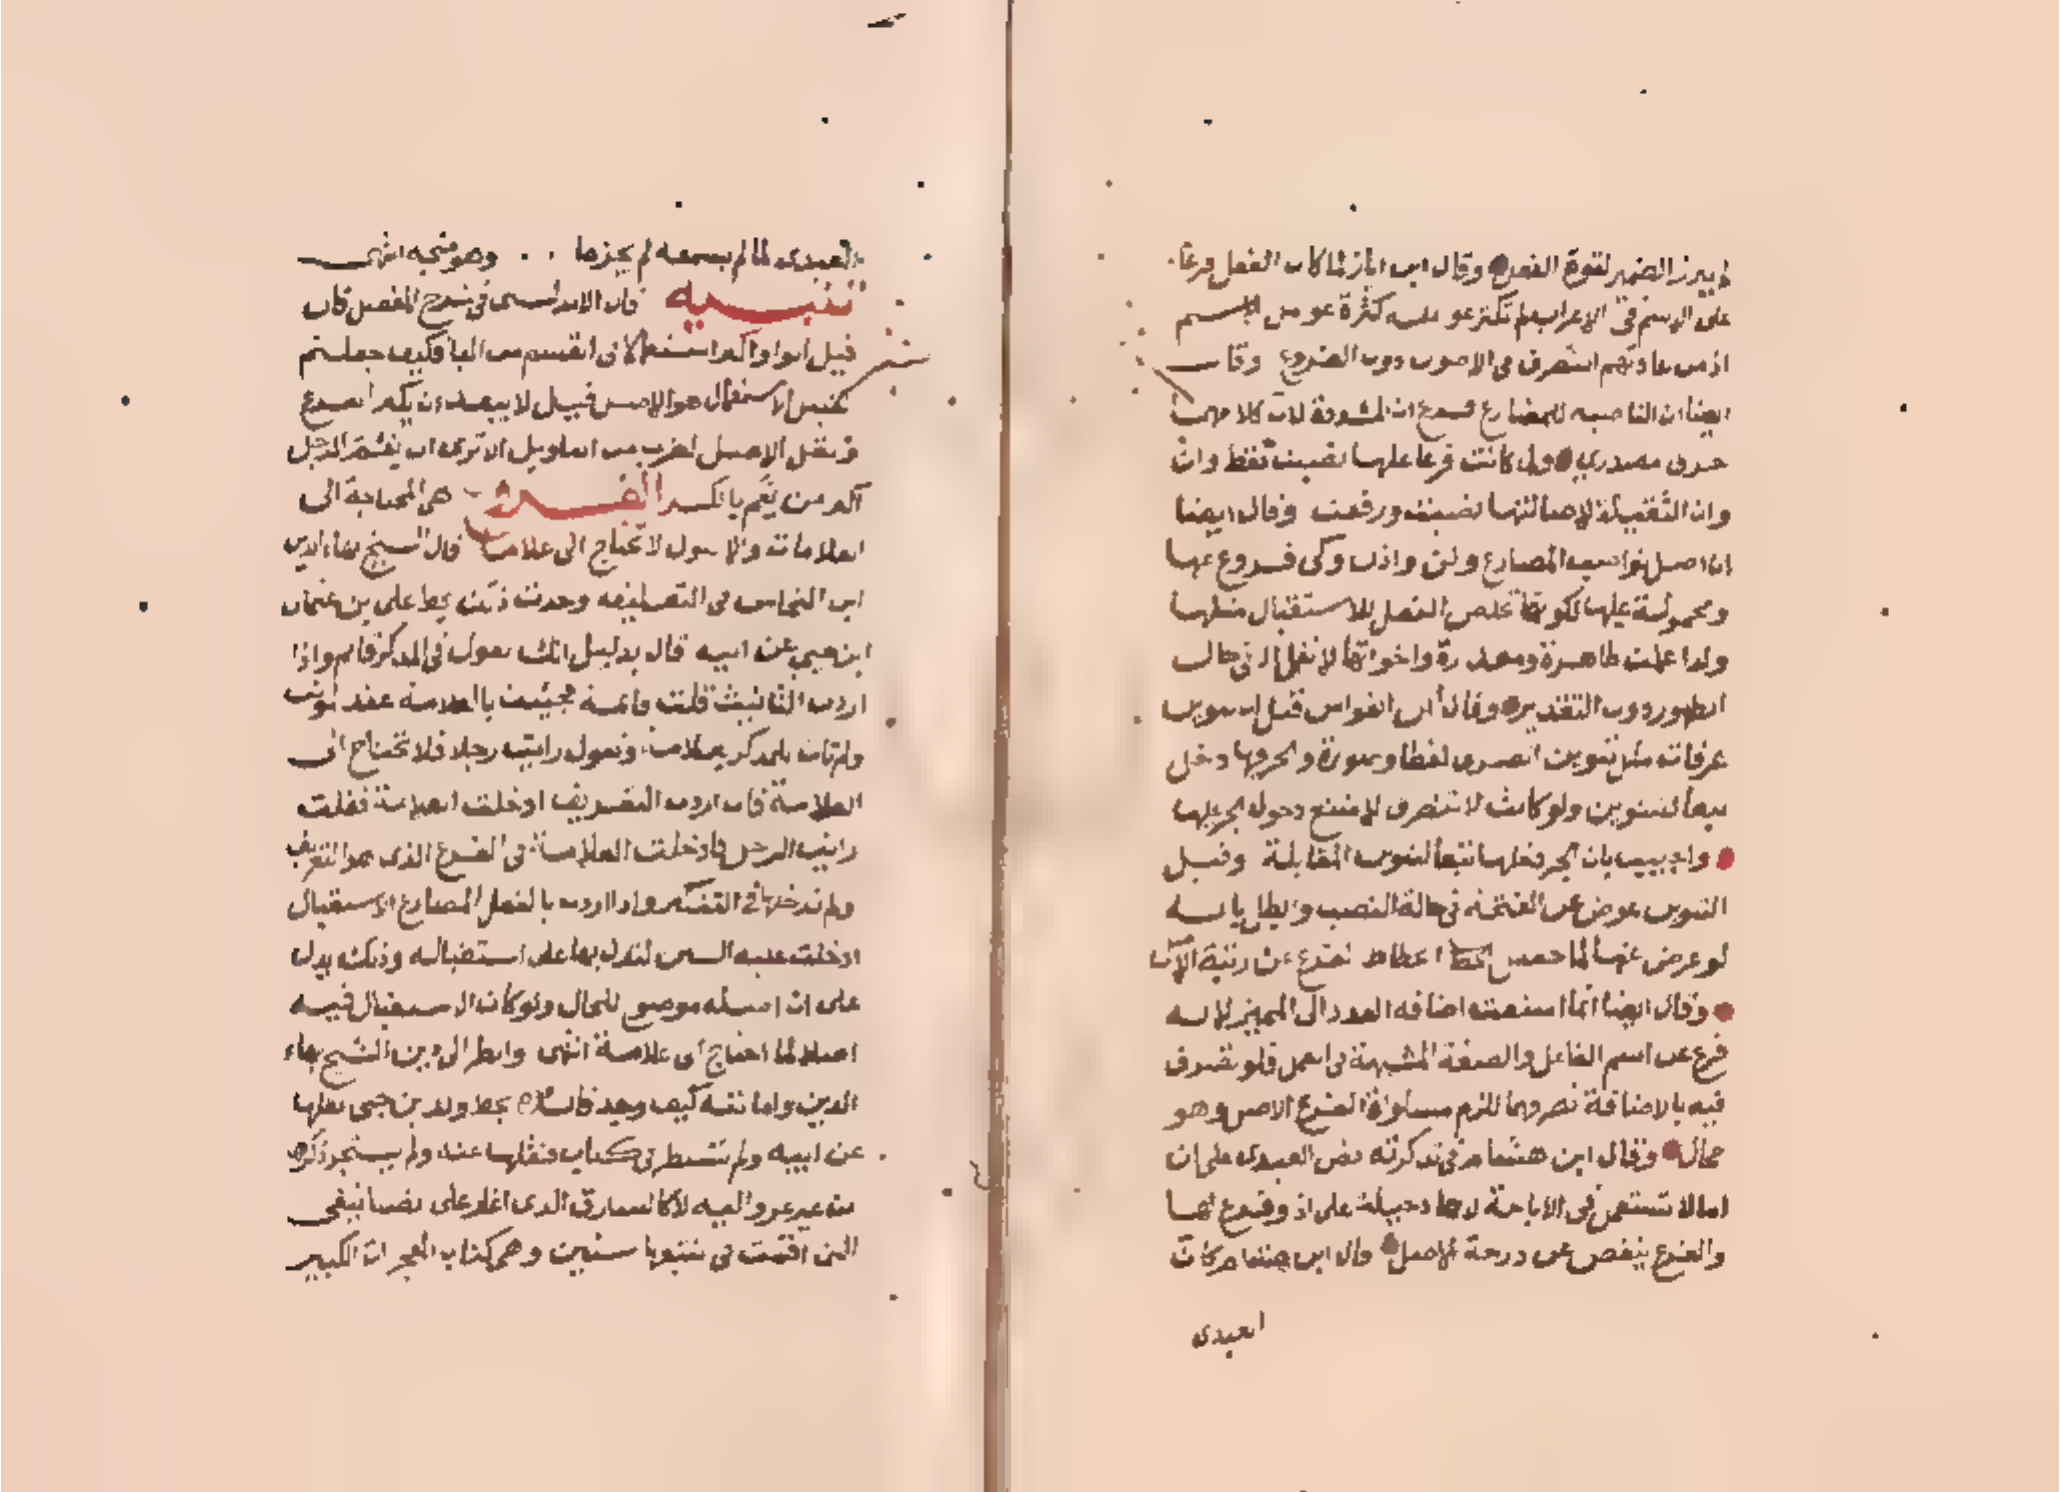 لم يبرز الضمير لقوة الفعل وقال ابن اياز لما كان الفعل فرعا
على الاسم في الاعراب لم تكثر عوامله كثرة عوامل الاسم
اذ من عادتهم التصرف في الاصول دون الفروع وقال
ايضا ان الناصبه للمضارع فرع ان المشددة لان كلا منهما
حرف مصدري ولما كانت فرعا عليها نصبت فقط وان
وان الثقيلة لاصالتها نصبت ورفعت وقال ايضا
ان اصل نواصب المضارع ولن واذن وكي فروع عنها
ومحمولة عليها لكونها تخلص الفعل للاستقبال مثلها
ولذا عملت ظاهرة ومقدرة واخواتها لا تعمل الا في حال
الظهور دون التقدير وقال ابن القواس قيل ان تنوين
عرفات مثل تنوين الصرف لفظا وصورة والجر فيها دخل
تبعا للتنوين ولو كانت لا تنصرف لامتنع دخول الجر عليها
واجيب بان الجر فيها تبعا لتنوين المقابلة وقيل
التنوين عوض عن الفتحة في حالة النصب وابطل بانه
لو عوض عنها لما حصل انحطاط الفرع عن رتبة الاصل
وقال ايضا انما امتنعت اضافه العدد الى المميز لانه
فرع عن اسم الفاعل والصفة المشبهة في العمل فلو تصرف
فيه بالاضافة تصرفهما للزم مساواة الفرع الاصل وهو
محال وقال ابن هشام في تذكرته نص العبدي على ان
اما لا تستعمل في الاباحة لانها دخيلة على او وفرع لها
والفرع ينقص عن درجة الاصل قال ابن هشام كان
العبدي
العبدي لما لم يسمعه لم يجزها وهو متجه انتهى
تنبيه قال الاندلسي في شرح المفصل فان
قيل الواو اكثر استعمالا في القسم من الباء فكيف جعلتم
القليل الاستعمال هو الاصل قيل لا يبعد ان يكثر الفرع
ويقل الاصل لضرب من التاويل الا ترى ان نعم الرجل
اكثر من نعم بالكسر الفروع هي المحتاجة الى
العلامات والاصول لا تحتاج الى علامة قال الشيخ بهاء الدين
ابن النحاس في التعليقه وجدت ذلك بخط علي بن عثمان
ابن جني عن ابيه قال بدليل انك تقول في المذكر قائم واذا
اردت التانيث قلت قائمة فجئت بالعلامة عند المونث
ولم تات للمذكر بعلامة وتقول رايت رجلا فلا تحتاج الى
العلامة فان اردت التعريف ادخلت العلامة فقلت
رايت الرجل فادخلت العلامة في الفرع الذي هو التعريف
ولم تدخلها في التنكير واذا اردت بالفعل المضارع الاستقبال
ادخلت عليه السين لتدل بها على استقباله وذلك يدل
على ان اصله موضوع للحال ولو كان الاستقبال فيه
اصلا لما احتاج الى علامة انتهى وانظر الى دين الشيخ بهاء
الدين وامانته كيف وجد فائدة بخط ولد ابن جني نقلها
عن ابيه ولم تسطر في كتاب فنقلها عنه ولم يستجز ذكرها
من غير عزو اليه لا كالسارق الذي اغار على تصانيفي
التي اقمت في تتبعها سنين وهي كتاب المعجزات الكبير